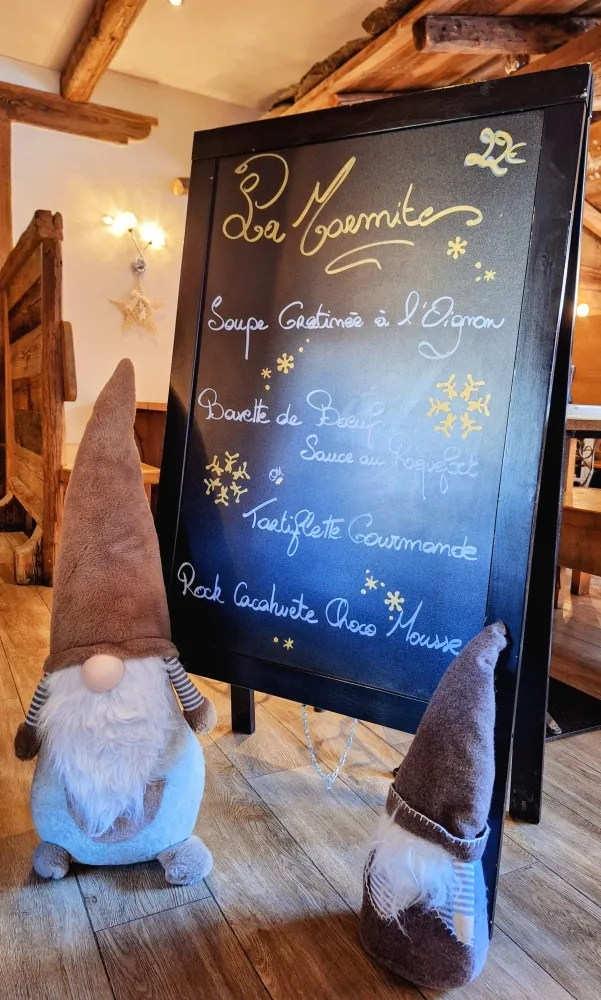 22€
La Marmite
Soupe Gratinée à l'Oignon
Bavette de Boeuf
Sauce au Roquefort
ou
Tartiflette Gourmande
Rock Cacahuete Choco Mousse